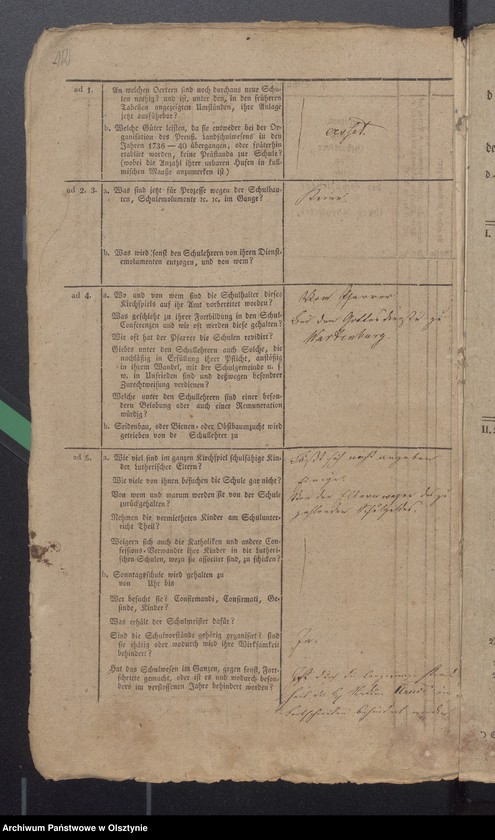 ad 1.
An welchen Oertern sind noch durchaus neue Schulen nöthig? und ist, unter den, in den früheren Tabellen angezeigten Umständen, ihre Anlage jetzt ausführbar?
b. Welche Güter leisten, da sie entweder bei der Organisation des Preuß. Landschulwesens in den Jahren 1736—40 übergangen, oder späterhin etablirt worden, keine Prästanda zur Schule? (wobei die Anzahl ihrer urbaren Hufen in kullmischen Maaße anzumerken ist)
ad 2. 3.
a. Was sind jetzt für Prozesse wegen der Schulbauten, Schulemolumente ꝛc. ꝛc. im Gange?
Keine.
b. Was wird sonst den Schullehrern von ihren Dienstemolumenten entzogen, und von wem?
ad 4.
a. Wo und von wem sind die Schulhalter dieses Kirchspiels auf ihr Amt vorbereitet worden?
Vom Pfarrer
Was geschieht zu ihrer Fortbildung in den Schul-Conferenzen und wie oft werden diese gehalten?
Bei dem Gottesdienste zu
Wartenburg.
Wie oft hat der Pfarrer die Schulen revidirt?
Giebts unter den Schullehrern auch Solche, die nachläßig in Erfüllung ihrer Pflicht, anstößig in ihrem Wandel, mit der Schulgemeinde u. s. w. in Unfrieden sind und deßwegen besonderer Zurechtweisung verdienen?
Welche unter den Schullehrern sind einer besondern Belobung oder auch einer Remuneration würdig?
b. Seidenbau, oder Bienen- oder Obstbaumzucht wird getrieben von de Schullehrer zu
ad 5.
a. Wie viel sind im ganzen Kirchspiel schulfähige Kinder Lutherischer Eltern?
Läßt sich nicht angeben
Wie viele von ihnen besuchen die Schule gar nicht?
Einige.
Von wem und warum werden sie von der Schule zurückgehalten?
Von den Eltern wegen des zu
zahlenden Schulgeldes.
Nehmen die vermietheten Kinder am Schulunterricht Theil?
Weigern sich auch die Katholiken und andere Confessions-Verwandte ihre Kinder in die Lutherischen Schulen, wozu sie associirt sind, zu schicken?
b. Sonntagsschule wird gehalten zu
von Uhr bis
Wer besucht sie? Confirmandi, Confirmati, Gesinde, Kinder?
Was erhält der Schulmeister dafür?
Sind die Schulvorstände gehörig organisirt? sind sie thätig oder wodurch wird ihre Wirksamkeit behindert?
Ja.
Hat das Schulwesen im Ganzen, gegen sonst, Fortschritte gemacht, oder ist es und wodurch besonders im verflossenen Jahre behindert worden?
Ist durch die
behindert worden
Archiwum Państwowe w Olsztynie